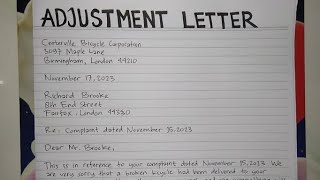 ADJUSTMENT LETTER
Centerville Bicycle Corporation
3097 Maple Lane
Birmingham, London 49210
November 17, 2023
Richard Brooke
8th End Street
Fairfax, London 44330
Re: Complaint dated November 15, 2023
Dear Mr. Brooke,
This is in reference to your complaint dated November 15, 2023. We
are very sorry that a broken bicycle had been delivered to your